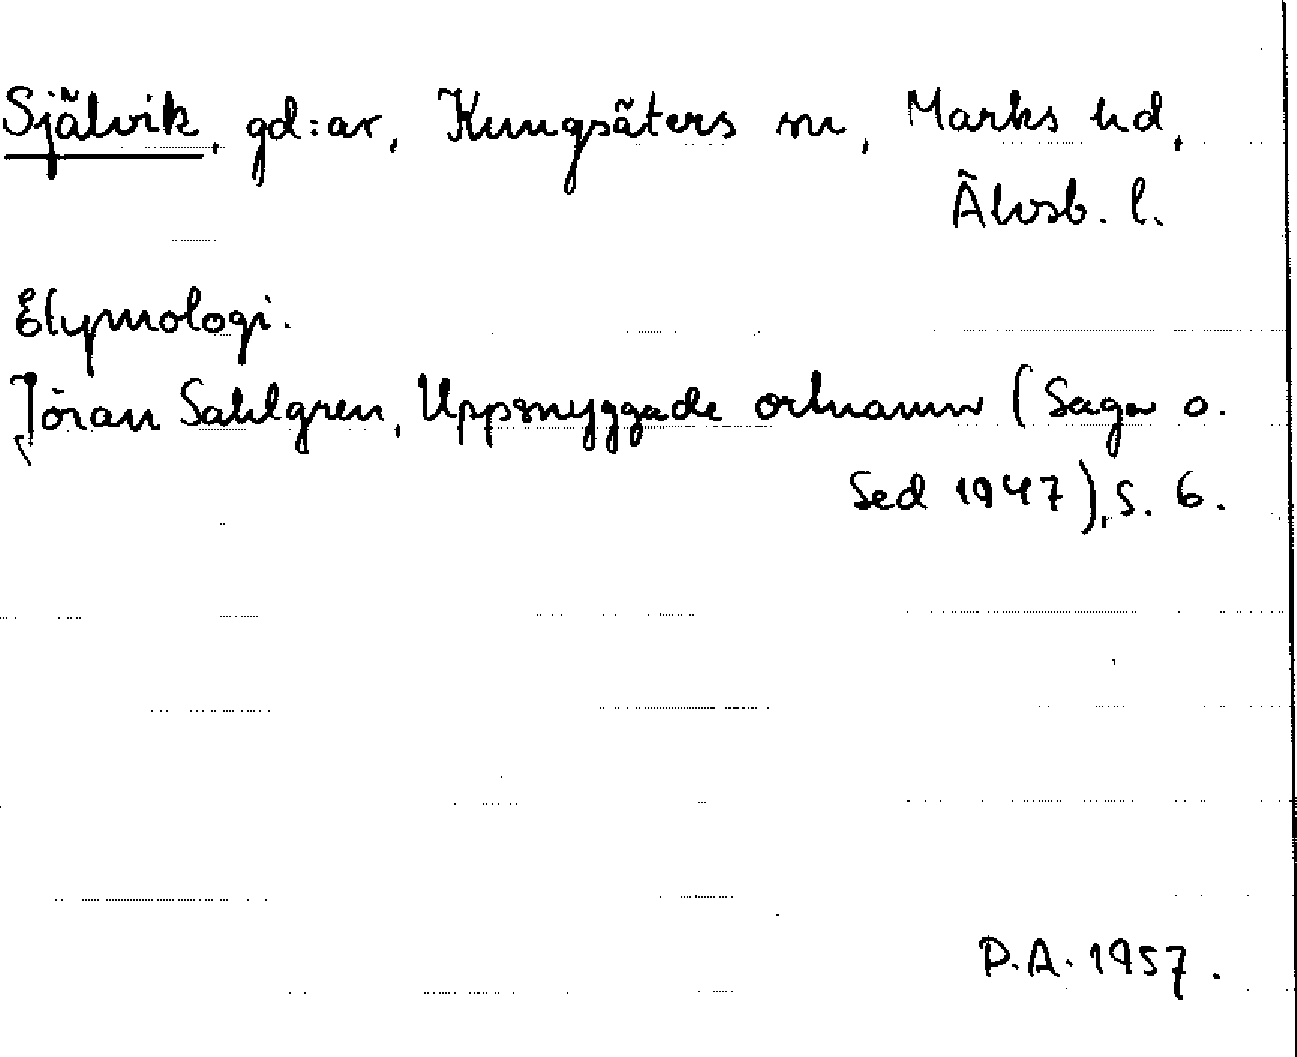 Självik, gd:ar, Kungsäters sn, Marks hd,
Älvsb. l.
Etymologi.
Jöran Sahlgren, Uppsnyggade ortnamn (Saga o.
Sed 1947), s. 6.
P.A. 1957.